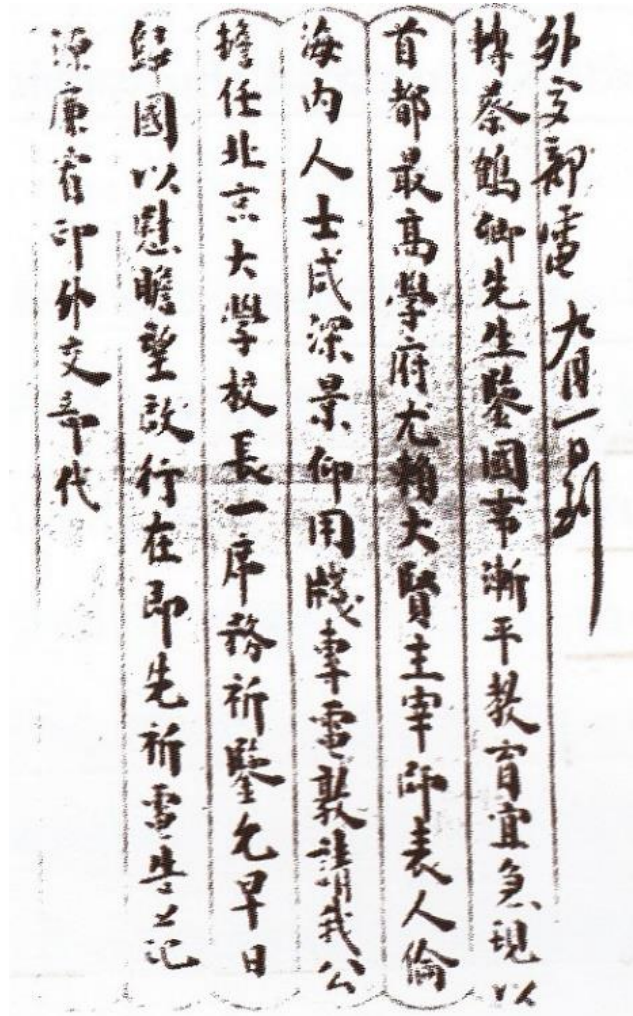 外交部電 九月一日到
轉蔡鶴卿先生鑒國事漸平教育宜急現以
首都最高學府尤賴大賢主宰師表人倫
海内人士咸深景仰用牋專電敦請我公
擔任北京大學校長一席務祈鑒允早日
歸國以慰瞻望啟行在即先祈電告
源廉宥印外交部代